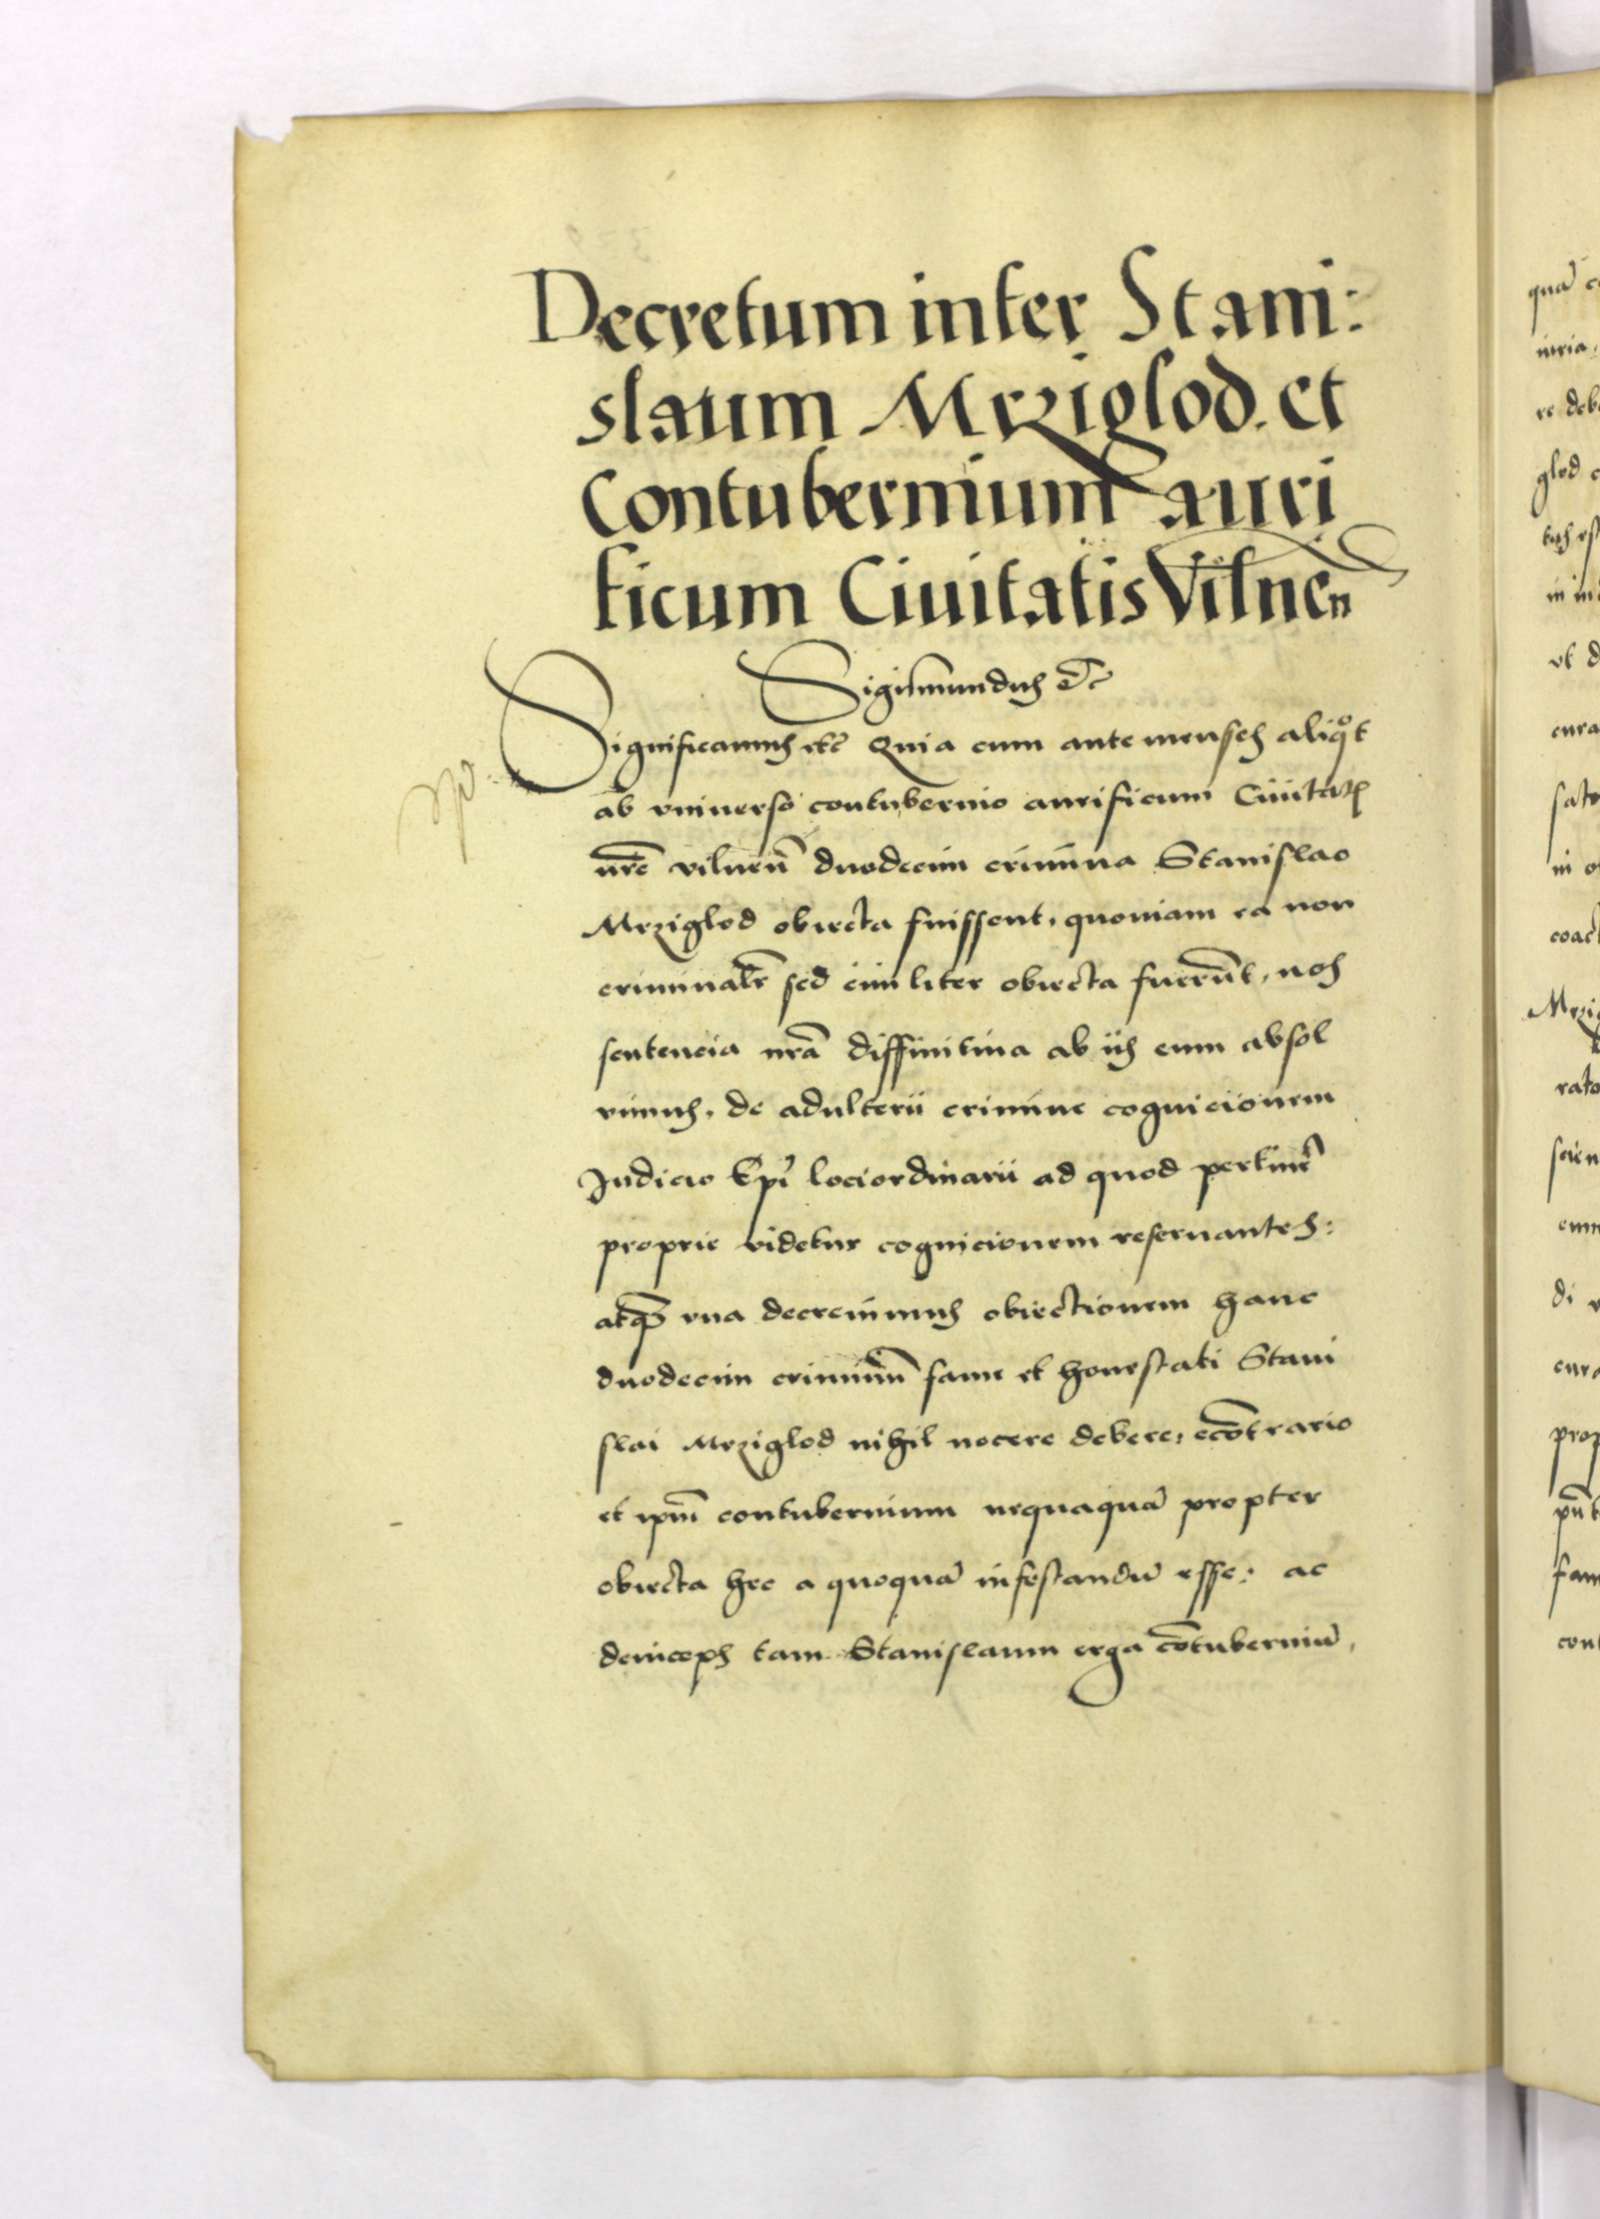 Decretum inter Stani:
slaum Mrziglod. et
Contubernium auri
ficum Ciuitatis Vilnen̄
Sigismundus etc̄
Significamus etc̄ Quia cum ante menses aliqͦt
ab vniuerso contubernio aurificum Ciuitatis
nr̄e vilnen̄ duodecim crimina Stanislao
Mrziglod obiecta fuissent, quoniam ea non
criminalr̄ sed ciuiliter obiecta fuerūt, nos
sentencia nr̄a diffinitiua ab iis eum absol
uimus, de adulterii crimine cognicionem
Iudicio Ep̄i loci ordinarii ad quod pertinē
proprie videtur cognicionem reseruantes:
atq̄ vna decreuimus obiectionem hanc
duodecim criminū fame et honestati Stani
slai Mrziglod nihil nocere debere: ecōtrario
et ip̄m contubernium nequaquā propter
obiecta hec a quoquā infestandū esse: ac
deinceps tam Stanislaum erga cōtuberniū,
quā
iuria,
re deb
glod
in
vt d
cura
sato
in o
coact
Mrzi
rato
scien
di
cura
prop
fam
cont